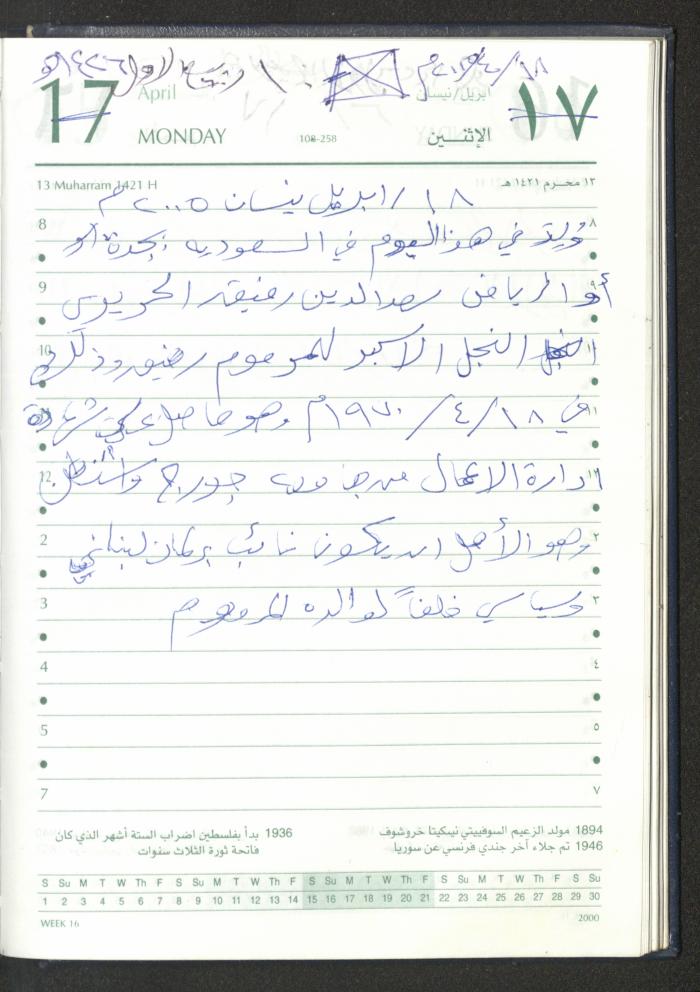 ١٨/٤/٢٠٠٥م
١٠ ربيع الاول ١٤٢٦هـ
17 April ابريل/نيسان ١٧
MONDAY 108-258 الإثنـين
13 Muharram 1421 H ١٣ محـرم ١٤٢١ هـ
١٨/ابريل نيسان ٢٠٠٥م
8 وُلِدَ في هذا اليوم في السعوديه بجدة او ٨
9 أو الرياض سعد الدين رفيق الحريري ٩
10 النجل الاكبر للمرحوم رفيق وذلك ١٠
في ١٨/٤/١٩٧٠م وهو حاصل على شهادة ١١
12 ادارة الاعمال من جامعه جورج واشنطن ١٢
2 وهو الأهل ان يكون نائب برلمان لبناني ٢
3 وسياسي خلفاً لوالده المرحوم ٣
4 ٤
5 ٥
7 ٧
1894 مولد الزعيم السوفييتي نيسكيتا خروشوف
1946 تم جلاء آخر جندي فرنسي عن سوريا
1936 بدأ بفلسطين اضراب الستة أشهر الذي كان
فاتحة ثورة الثلاث سنوات
S Su M T W Th F S Su M T W Th F S Su M T W Th F S Su M T W Th F S Su
1 2 3 4 5 6 7 8 9 10 11 12 13 14 15 16 17 18 19 20 21 22 23 24 25 26 27 28 29 30
WEEK 16 2000